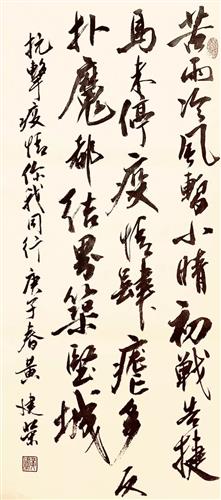 苦雨冷風暫小晴初戰告捷
馬未停疫情肆瘧多反
扑魔都结界築堅城
抗擊疫情你我同行庚子春黃健榮